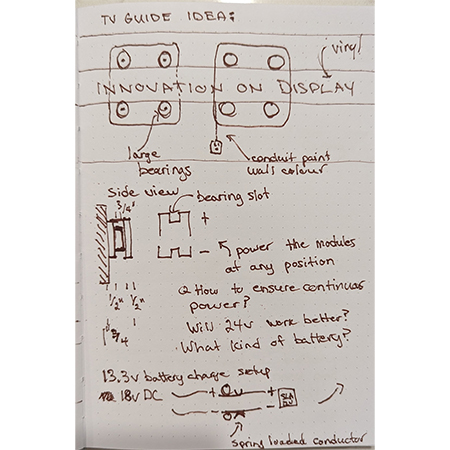 TV GUIDE IDEA:
vinyl
INNOVATION ON DISPLAY
large bearings
conduit paint wall colour
Side view
bearing slot
3/4"
+
-
power the modules
at any position
Q How to ensure continuous
power?
1/2" 1/2"
Will 24v work better?
3/4
What kind of battery?
13.3v battery charge setup
18v DC + +
- -
SLA
spring loaded conductor